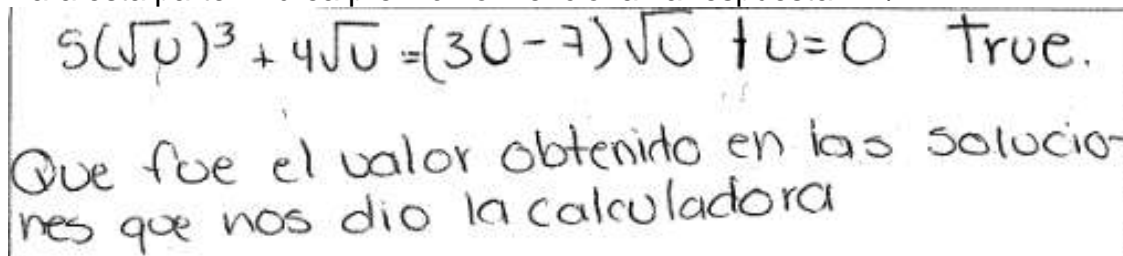 5(√U)³ + 4√U =(3U-7)√U | U=0 True.
Que fue el valor obtenido en las solucio-
nes que nos dio la calculadora